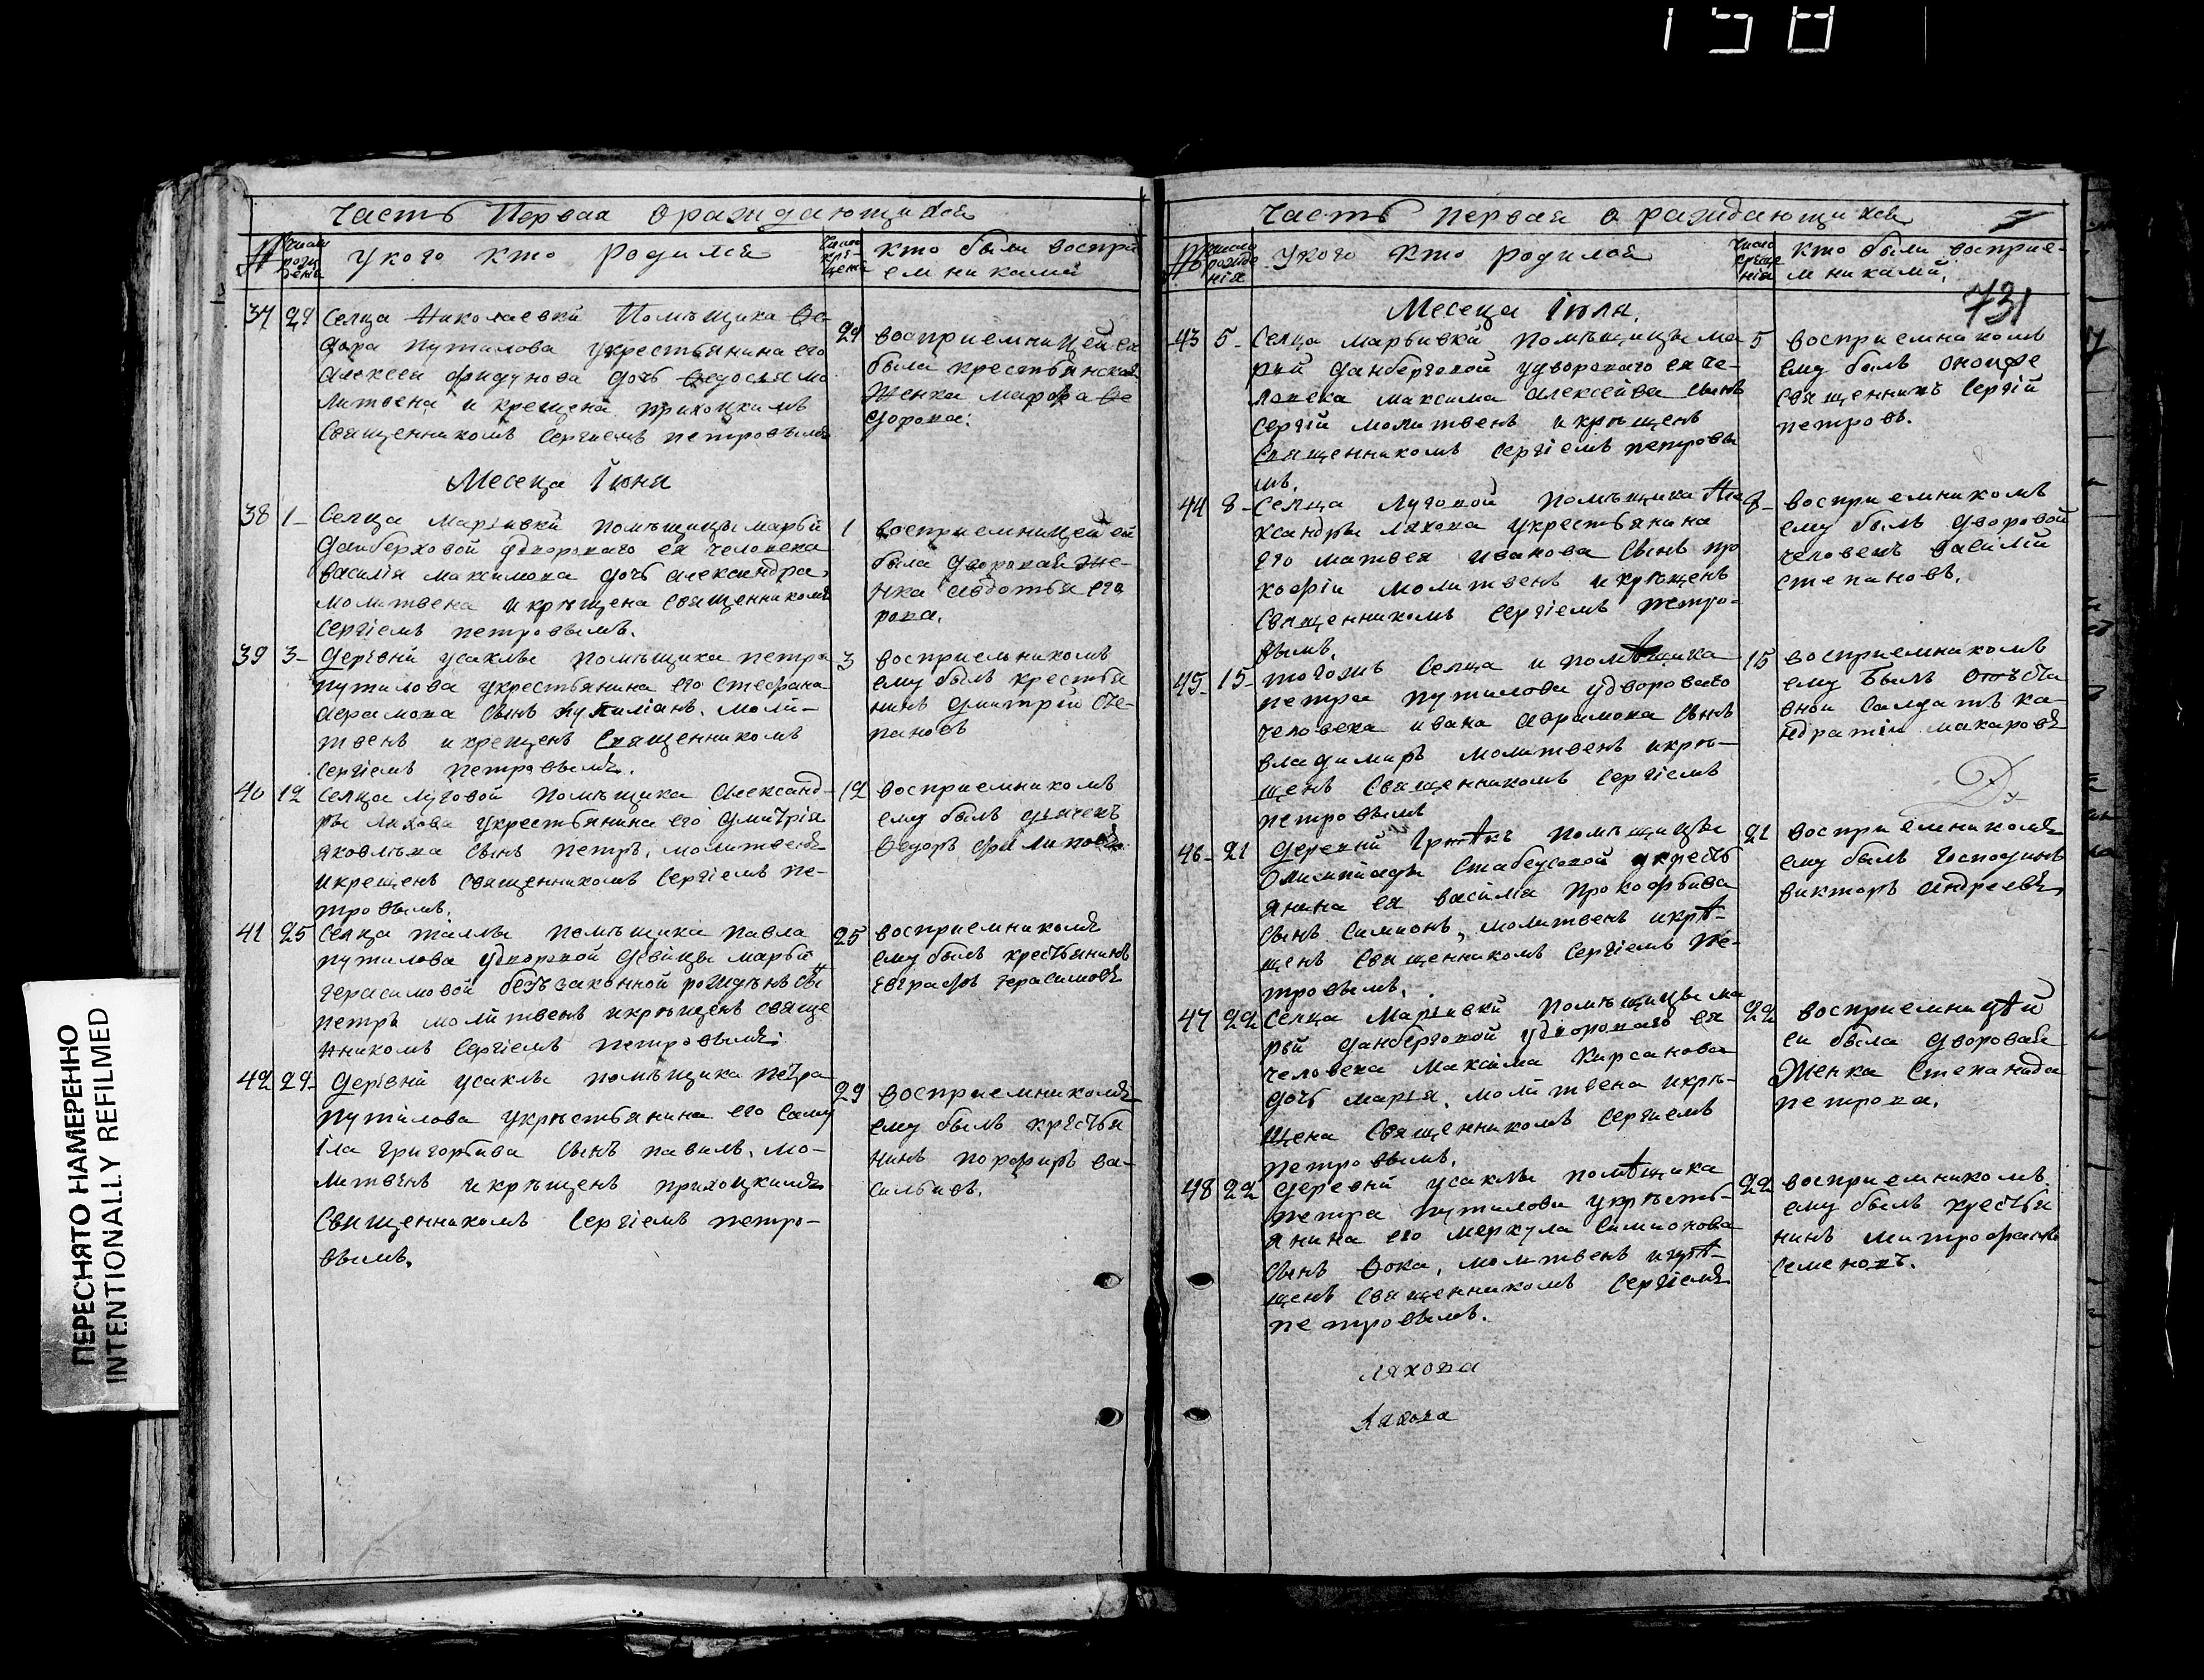 158
ПЕРЕСНЯТО НАМЕРЕННО
INTENTIONALLY REFILMED
Часть Первая ораждающихся
№
Число рожденiя
У кого кто родился
Число крещенiя
Кто были восприемниками
37
29
Селца Николаевки Помъщика Ѳе-
дора Путилова укрестьянина его
Алексея дочь Ѳедосья мо
литвена и крещена прихоцкимъ
Священникомъ Сергиемъ петровымъ
29
восприемницей ея
была крестьянская
Женка марфа Ѳе
дорова:
Месеца Iюня
38
1
Селца Марiевки помъщицы марьи
данберховой удворового ея человека
василiя максимова дочь александра,
молитвена и кръщена священникомъ
Сергiемъ петровымъ.
1
восприемницей ей
была дворовая же-
нка авдотья его
рова.
39
3
деревни усаклы помъщика петра
путилова укрестьянина его стефана
аврамова сынъ молй-
твенъ и крещенъ Священникомъ
Сергiемъ петровымъ.
3
восприемникомъ
ему былъ крестья
нинъ дмитрий сте-
пановъ
40
12
Селца луговой помъщика Александ-
ры ляхова укрестьянина его дмитрiя
яковлъва сынъ петръ, молитвенъ
и крещенъ священникомъ Сергiемъ пе-
тровымъ.
12
восприемникомъ
ему былъ дьячекъ
Ѳедоръ филиповъ.
41
25
Селца таллы помъщика павла
путилова удворовой девицы марьи
герасимовой безъзаконной рождънъ сы
петръ молитвенъ икръщенъ свяще
нникомъ Сергiемъ петровымъ;
25
восприемникомъ
ему былъ крестьянинъ
евграфъ герасимовъ
42
29
деревнй усаклы помъщика петра
путилова укръстьянина его саму
iла григорьева сынъ павилъ, мо-
литвенъ и кръщенъ прихоцкимъ
Священникомъ Сергiемъ петро-
вымъ.
29
восприемникомъ
ему былъ крестья
нинъ порфиръ ва-
сильивъ.
Часть первая о раждающихся
731
№
число рожденiя
У кого Кто родился
Число крещенiя
Кто были восприе-
мниками.
Месеца Iюля.
43
5
Селца марьивки помъщицы ма
рьи данберговой удворового ея че-
ловека максима алексейва сынъ
сергiй молитвенъ и кръщенъ
Священникомъ Сергiемъ петровы
мъ.
5
восприемникомъ
ему былъ онойже
священникъ Сергiй
петровъ.
44
8
Селца луговой помъщика Але
ксандры ляхова укрестьянина
его матвея иванова сынъ про
кофiи молитвенъ икръщенъ
Священникомъ Сергiемъ петро-
вымъ.
8
восприемникомъ
ему былъ дворовой
человекъ василiй
степановъ.
45
15
тогожъ Селца и помѣщика
петра путилова удворового
человека ивана аврамова сынъ
владимиръ молитвенъ икръ-
щенъ Священникомъ Сергiемъ
петровымъ
15
восприемникомъ
ему былъ отъста
вной Салдатъ ка-
ндратiй макаровъ
46
21
деревни помъщицы
Олимпиады укресть
янина ея василiя прокофьива
сынъ Симионъ, молитвенъ икрѣ-
щенъ Священникомъ Сергiемъ пе-
тровымъ.
21
восприемникомъ
ему былъ господинъ
викторъ андреевъ
47
22
Селца Марiевки помъщицы ма
рьи данберговой удворового ея
человека Максима Кирсанова
дочь марiя, молитвена икръ-
щена Священникомъ Сергiемъ
петровымъ.
22
восприемницѣй
ей была дворовая
Женка Степанида
петрова.
48
22
деревнй усаклы помѣщика
петра путилова укръсть-
янина его меркула Симионова
сынъ Ѳока, молитвенъ икрѣ-
щенъ Священникомъ Сергiемъ
петровымъ.
22
восприемникомъ
ему былъ крестья
нинъ митрофанъ
Семеновъ.
ляхова
ляхова